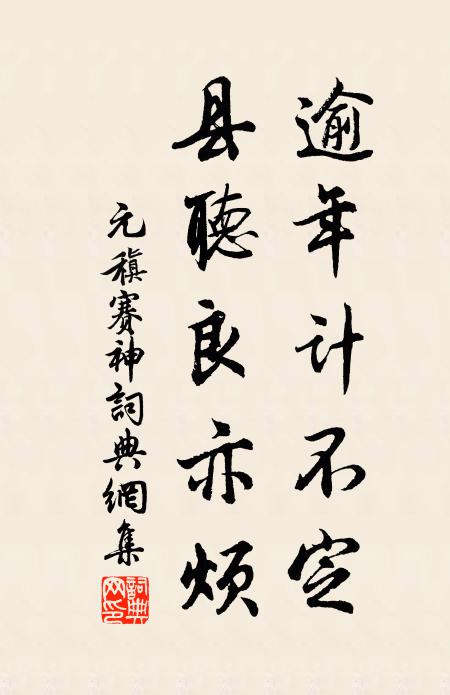 逾年计不定
县聽良亦烦
元稹赛神詞典網集
詞典网印